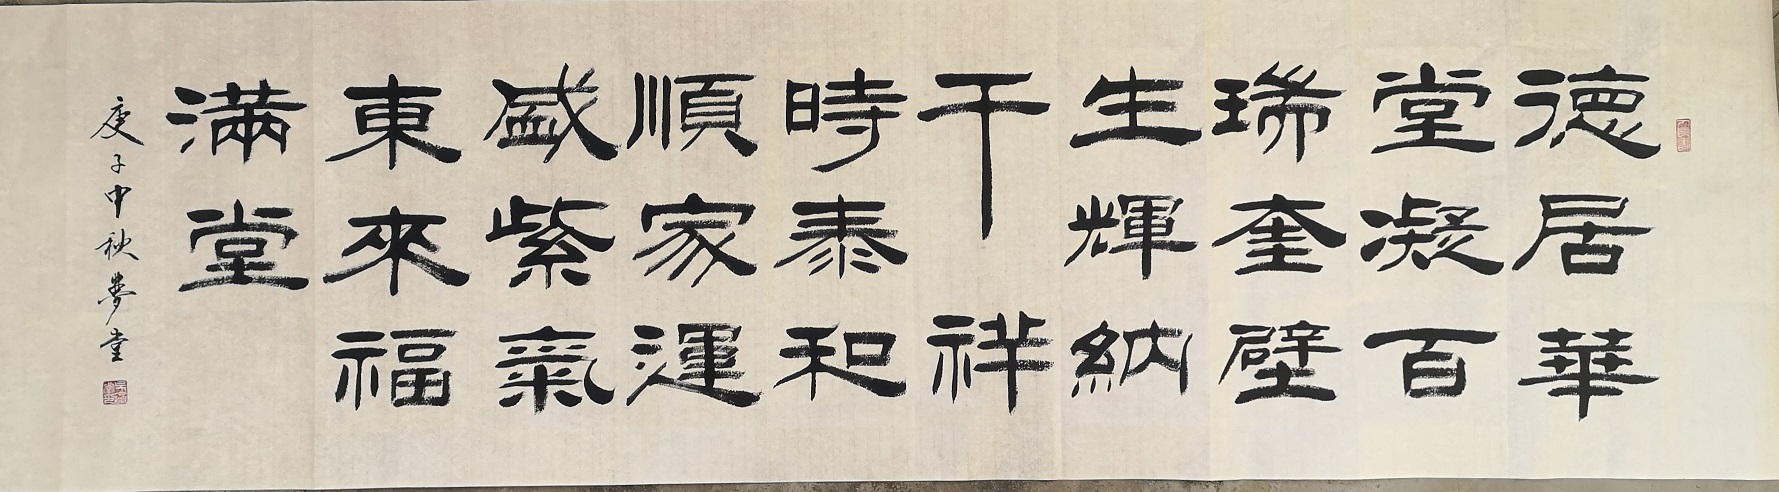 德居華
堂凝百
瑞奎壁
生輝納
千祥
時泰和
順家運
盛紫氣
東來福
滿堂
庚子中秋夢堂